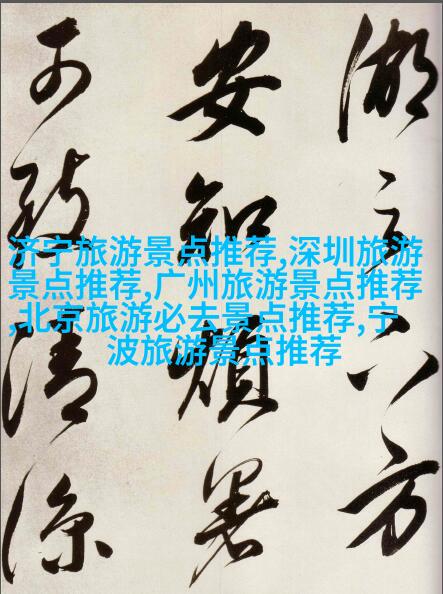 湖方
安知煩暑
可致清涼
济宁旅游景点推荐,深圳旅游
景点推荐,广州旅游景点推荐
,北京旅游必去景点推荐,宁
波旅游景点推荐